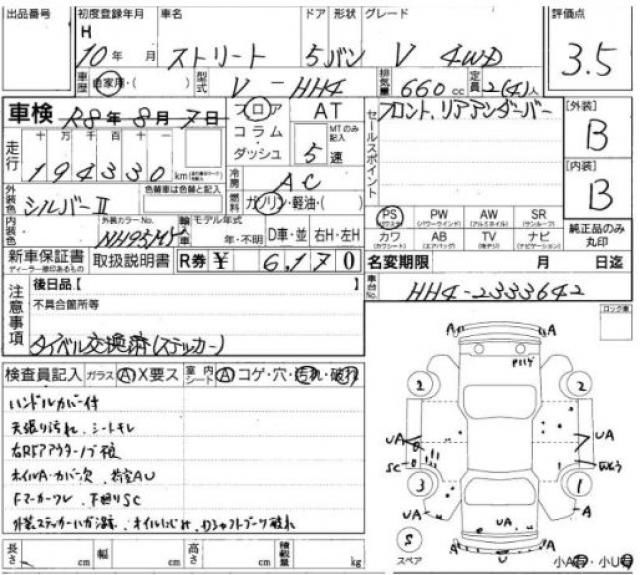 出品番号 初度登録年月 車名 ドア 形状 グレード 評価点
H 10年 月 ストリート 5 バン V 4WD 3.5
車歴 自家用・( ) 型式 V-HH4 排気量 660 cc 定員 2(4)人
車検 R8年8月7日 フロア AT セールスポイント フロント、リアアンダーバー [外装]
コラム MTのみ記入 B
走行 十万千百十一 ダッシュ 5速
194330 km 冷房 AC [内装]
外装色 シルバーII 色替車は色替と記入 燃料 ガソリン・軽油・( ) B
内装色 外装カラーNo. 輸入車 モデル年式 PS PW AW SR
年・不明 D車・並 右H・左H (パワーウインド) (アルミホイル) (サンルーフ)
カワ AB TV ナビ 純正品のみ丸印
(カワシート) (エアバッグ) (ナビゲーション)
新車保証書 取扱説明書 R券 ¥ 6,170 名変期限 月 日迄
ディーラー捺印あるもの
注意事項 後日品【 車台No. HH4-2333642
不具合箇所等 ロック車
タイベル交換済(ステッカー)
検査員記入 ガラス A X要ス 室内シート A コゲ・穴・汚れ・破れ
ハンドルカバー付
天張り汚れ、シートキレ
ホイルA・カバー欠、荷室AU
Fマーカーワレ、下廻りSC
A A
2 2
UA UA
SC
3 1
A UA A
S スペア U
長さ cm 幅 cm 高さ cm 積載量 kg 小A有・小U有